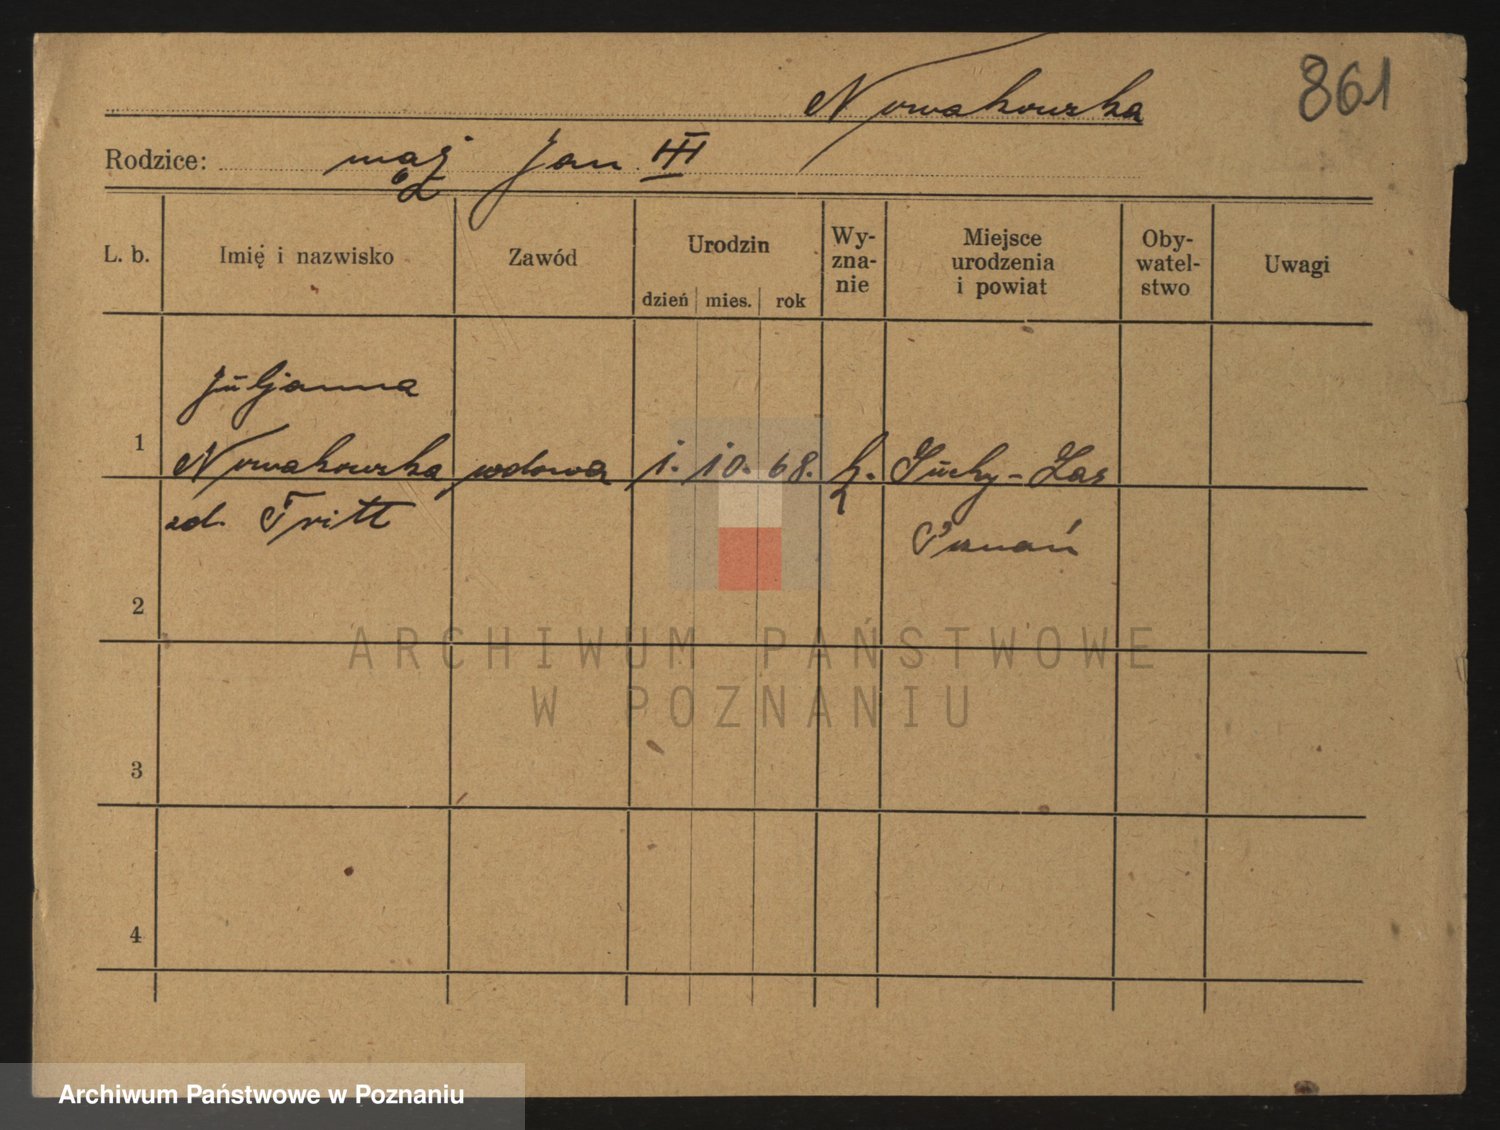 861
Nowakowska
Rodzice: mąż Jan III
L. b. Imię i nazwisko Zawód Urodzin dzień mies. rok Wy-zna-nie Miejsce urodzenia i powiat Oby-watel-stwo Uwagi
Juljanna
1 Nowakowska wdowa 1. 10. 68. k. Suchy-Las
zd. Tritt Poznań
2
3
4
ARCHIWUM PAŃSTWOWE
W POZNANIU
Archiwum Państwowe w Poznaniu